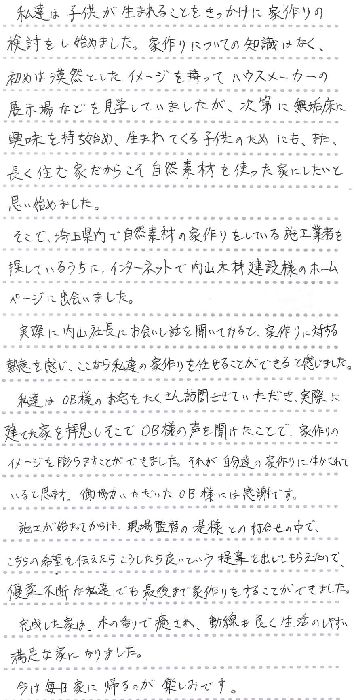 私達は子供が生まれることをきっかけに家作りの
検討をし始めました。家作りについての知識はなく、
初めは漠然としたイメージを持ってハウスメーカーの
展示場などを見学していきましたが、次第に無垢床に
興味を持ち始め、生まれてくる子供のためにも、また、
長く住む家だからこそ自然素材を使った家にしたいと
思い始めました。
そこで、埼玉県内で自然素材の家作りをしている施工業者を
探しているうちに、インターネットで内山木材建設様のホーム
ページに出会いました。
実際に内山社長にお会いし話を聞いてみると、家作りに対する
熱意を感じ、ここなら私達の家作りを任せることができると感じました。
私達はOB様のお宅をたくさん訪問させていただき、実際に
建てた家を拝見しそこでOB様の声を聞けたことで、家作りの
イメージを膨らますことができました。それが自分達の家作りに生かされて
いると思います。御協力いただいたOB様には感謝です。
施工が始まってからは、現場監督の是様との打合せの中で、
こちらの希望を伝えたらこうしたら良いという提案を出してもらえたので、
優柔不断な私達でも最後まで家作りをすることができました。
完成した家は、木の香りで癒され、動線も良く生活のしやすい
満足な家になりました。
今は毎日家に帰るのが楽しみです。